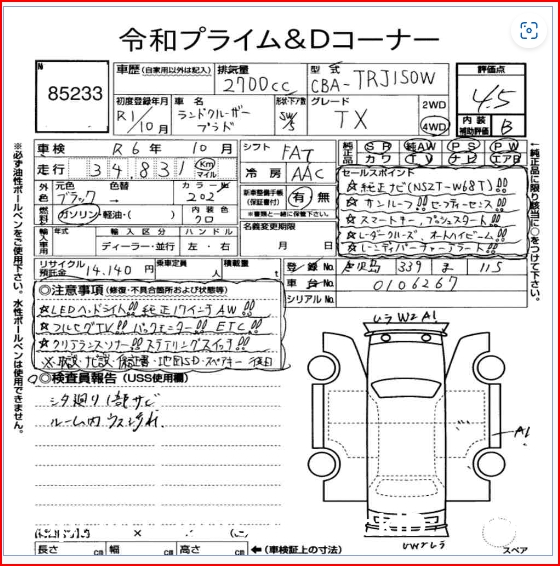 令和プライム&Dコーナー
№
85233
車歴(自家用以外は記入)
排気量
2700cc
型式
CBA-TRJ150W
評価点
4.5
初度登録年月
R1/10月
車名
ランドクルーザー
プラド
形状・ドア数
SW/5
グレード
TX
2WD
4WD
内装
補助評価
B
車検
R6年10月
シフト
FAT
純正品
SR
純AW
PS
PW
カワ
TV
ナビ
エアB
走行
34,831
Km
マイル
冷房
AAC
外色
元色
ブラック
色替
カラー№
202
新車整備手帳
(保証書付)
有・無
※書類と一緒に保管下さい。
燃料
ガソリン・軽油・( )
内装色
クロ
名義変更期限
月 日
輸入車用
年式
輸入区分
ディーラー・並行
ハンドル
左・右
セールスポイント
☆純正ナビ(NSZT-W68T)!!
☆サンルーフ!! セーフティセンス!!
☆スマートキー、プッシュスタート!!
☆レーダークルーズ、オートハイビーム!!
リサイクル
預託金
14,140円
乗車定員
人
積載量
t
登録No.
339 115
車台No.
0106267
シリアルNo.
◎注意事項(修復・不具合箇所および状態等)
☆LEDヘッドライト!! 純正17インチAW!!
☆フルセグTV!! バックモニター!! ETC!!
☆クリアランスソナー!! ステアリングスイッチ!!
※取説・記録・保証書・地図SD・スペアキー 後日
◎検査員報告(USS使用欄)
シタ廻り1部サビ
ルーム内ウス汚れ
※必ず油性ボールペンをご使用下さい。水性ボールペンは使用できません。
純正品に限り該当に○をつけて下さい。
ウラW2 A1
A1
スペア
長さ cm 幅 cm 高さ cm ←(車検証上の寸法)